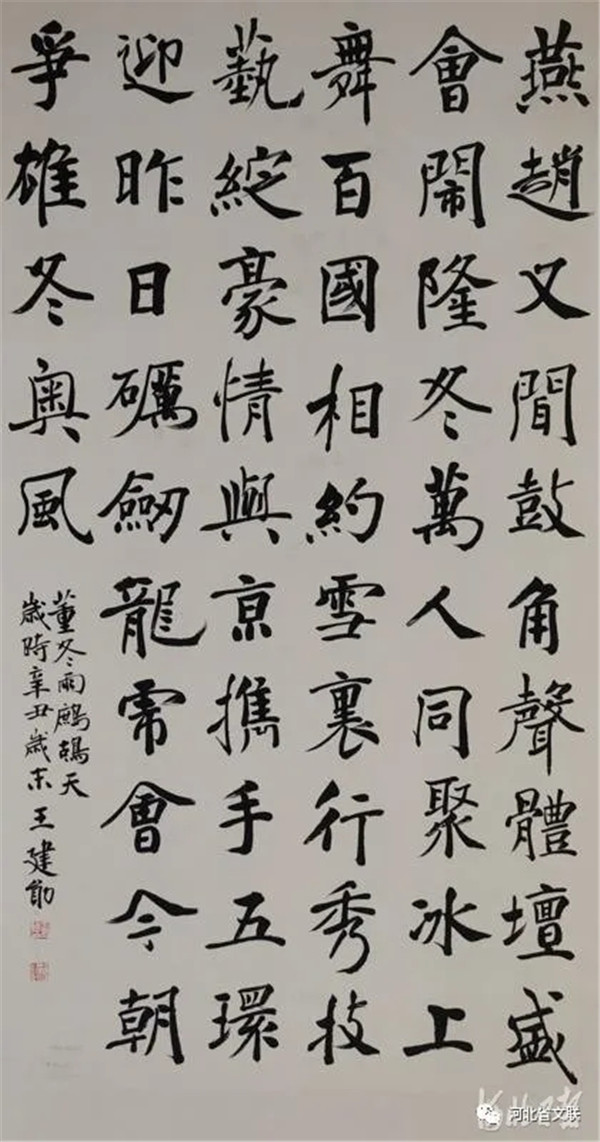 燕趙又聞鼓角聲體壇盛
會鬧隆冬萬人同聚冰上
舞百國相約雪裏行秀技
藝綻豪情與京攜手五環
迎昨日礪劒龍虎會今朝
爭雄冬奧風
董冬雨鷓鴣天
歲時辛丑歲末王建
河北日报
河北省文联